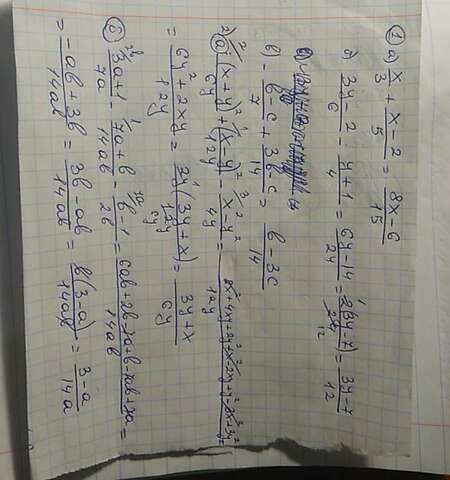 ① а) x/3 + (x-2)/5 = (8x-6)/15
б) (3y-2)/6 - (y+1)/4 = (6y-14)/24 = 2(3y-7)/24 = (3y-7)/12
в) - (b-c)/7 + (3b-c)/14 = (b-3c)/14
2) а) (x+y)²/6y + (x-y)²/12y - (x²-y²)/4y = (2x²+4xy+2y²+x²-2xy+y²-3x²+3y²)/12y
= (6y²+2xy)/12y = 2y(3y+x)/12y = (3y+x)/6y
б) (3a+1)/7a - (7a+b)/14ab - (b-1)/2b = (6ab+2b-7a+b-7ab+7a)/14ab =
= (-ab+3b)/14ab = (3b-ab)/14ab = b(3-a)/14ab = (3-a)/14a